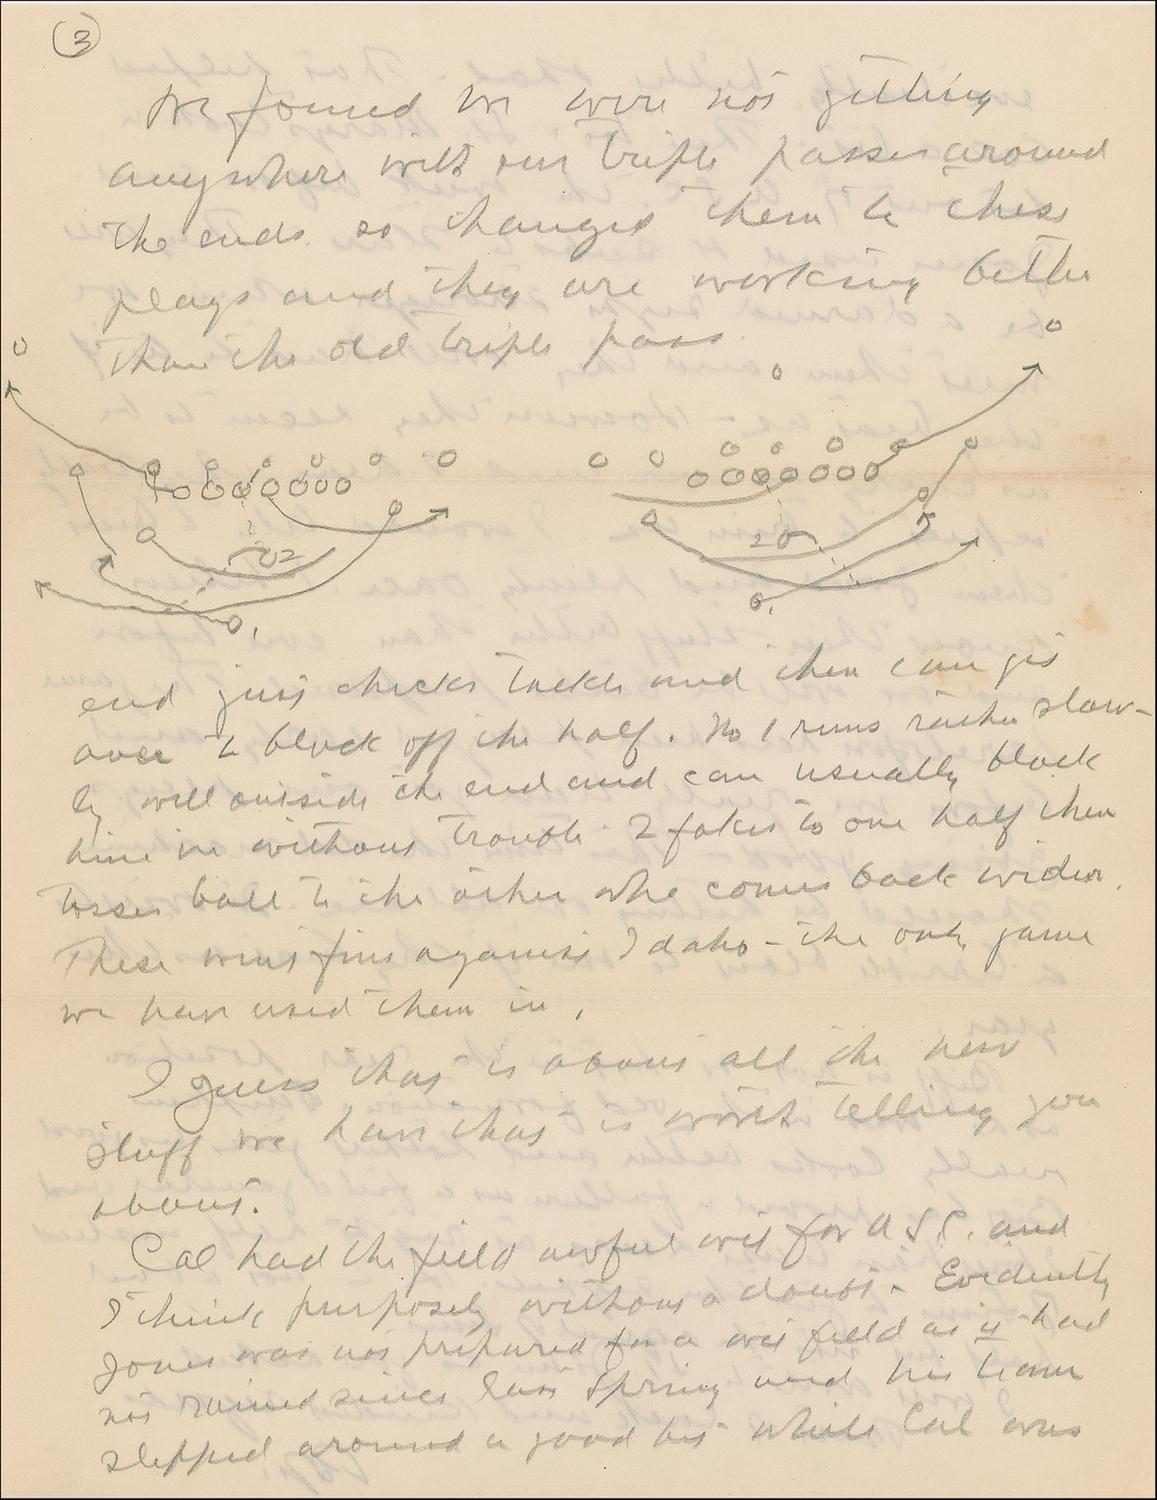 3
We found we were not getting
anywhere with our triple passes around
the ends so changed them to these
plays and they are working better
than the old triple pass.
2
1
2
1
end just checks tackle and then can get
over to block off the half. No 1 runs rather slow-
ly well outside the end and can usually block
him in without trouble. 2 fakes to one half then
tosses ball to the other who comes back wider.
These went fine against Idaho - the only game
we have used them in.
I guess that is about all the new
stuff we have that is worth telling you
about.
Cal had the field awful wet for U.S.C. and
I think purposely without a doubt - Evidently
Jones was not prepared for a wet field as it had
not rained since last Spring and his team
slipped around a good bit while Cal was